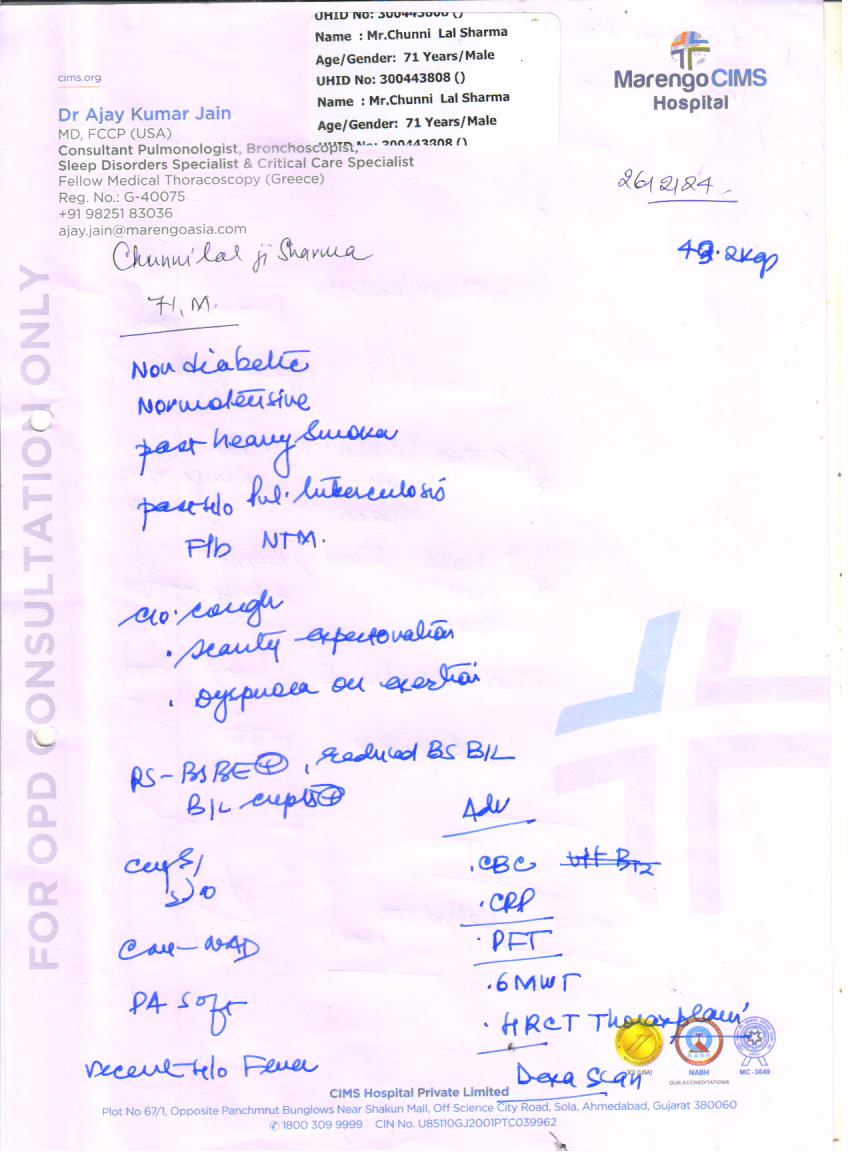 UHID No: 300443808 ()
Name : Mr.Chunni Lal Sharma
Age/Gender: 71 Years/Male
UHID No: 300443808 ()
Name : Mr.Chunni Lal Sharma
Age/Gender: 71 Years/Male
UHID No: 300443808 ()
Marengo CIMS
Hospital
cims.org
Dr Ajay Kumar Jain
MD, FCCP (USA)
Consultant Pulmonologist, Bronchoscopist,
Sleep Disorders Specialist & Critical Care Specialist
Fellow Medical Thoracoscopy (Greece)
Reg. No.: G-40075
+91 98251 83036
ajay.jain@marengoasia.com
26/2/24
Chunnilal ji Sharma
71, M.
FOR OPD CONSULTATION ONLY
Non diabetic
Normotensive
past heavy smoker
past H/o Pul. tuberculosis
F/b NTM.
c/o. cough
. scanty expectoration
. Dyspnoea on exertion
RS - BSBE + , reduced BS B/L
B/L crepts +
Adv
CVS S1
. CBC Vit B12
. CRP
. PFT
CNS - NAD
. 6MWT
PA Soft
. HRCT Thorax plain
recent H/o Fever
Dexa Scan
(USA)
NABH
MC-3049
OUR ACCREDITATIONS
CIMS Hospital Private Limited
Plot No 67/1, Opposite Panchmrut Bunglows Near Shakun Mall, Off Science City Road, Sola, Ahmedabad, Gujarat 380060
1800 309 9999 CIN No. U85110GJ2001PTC039962